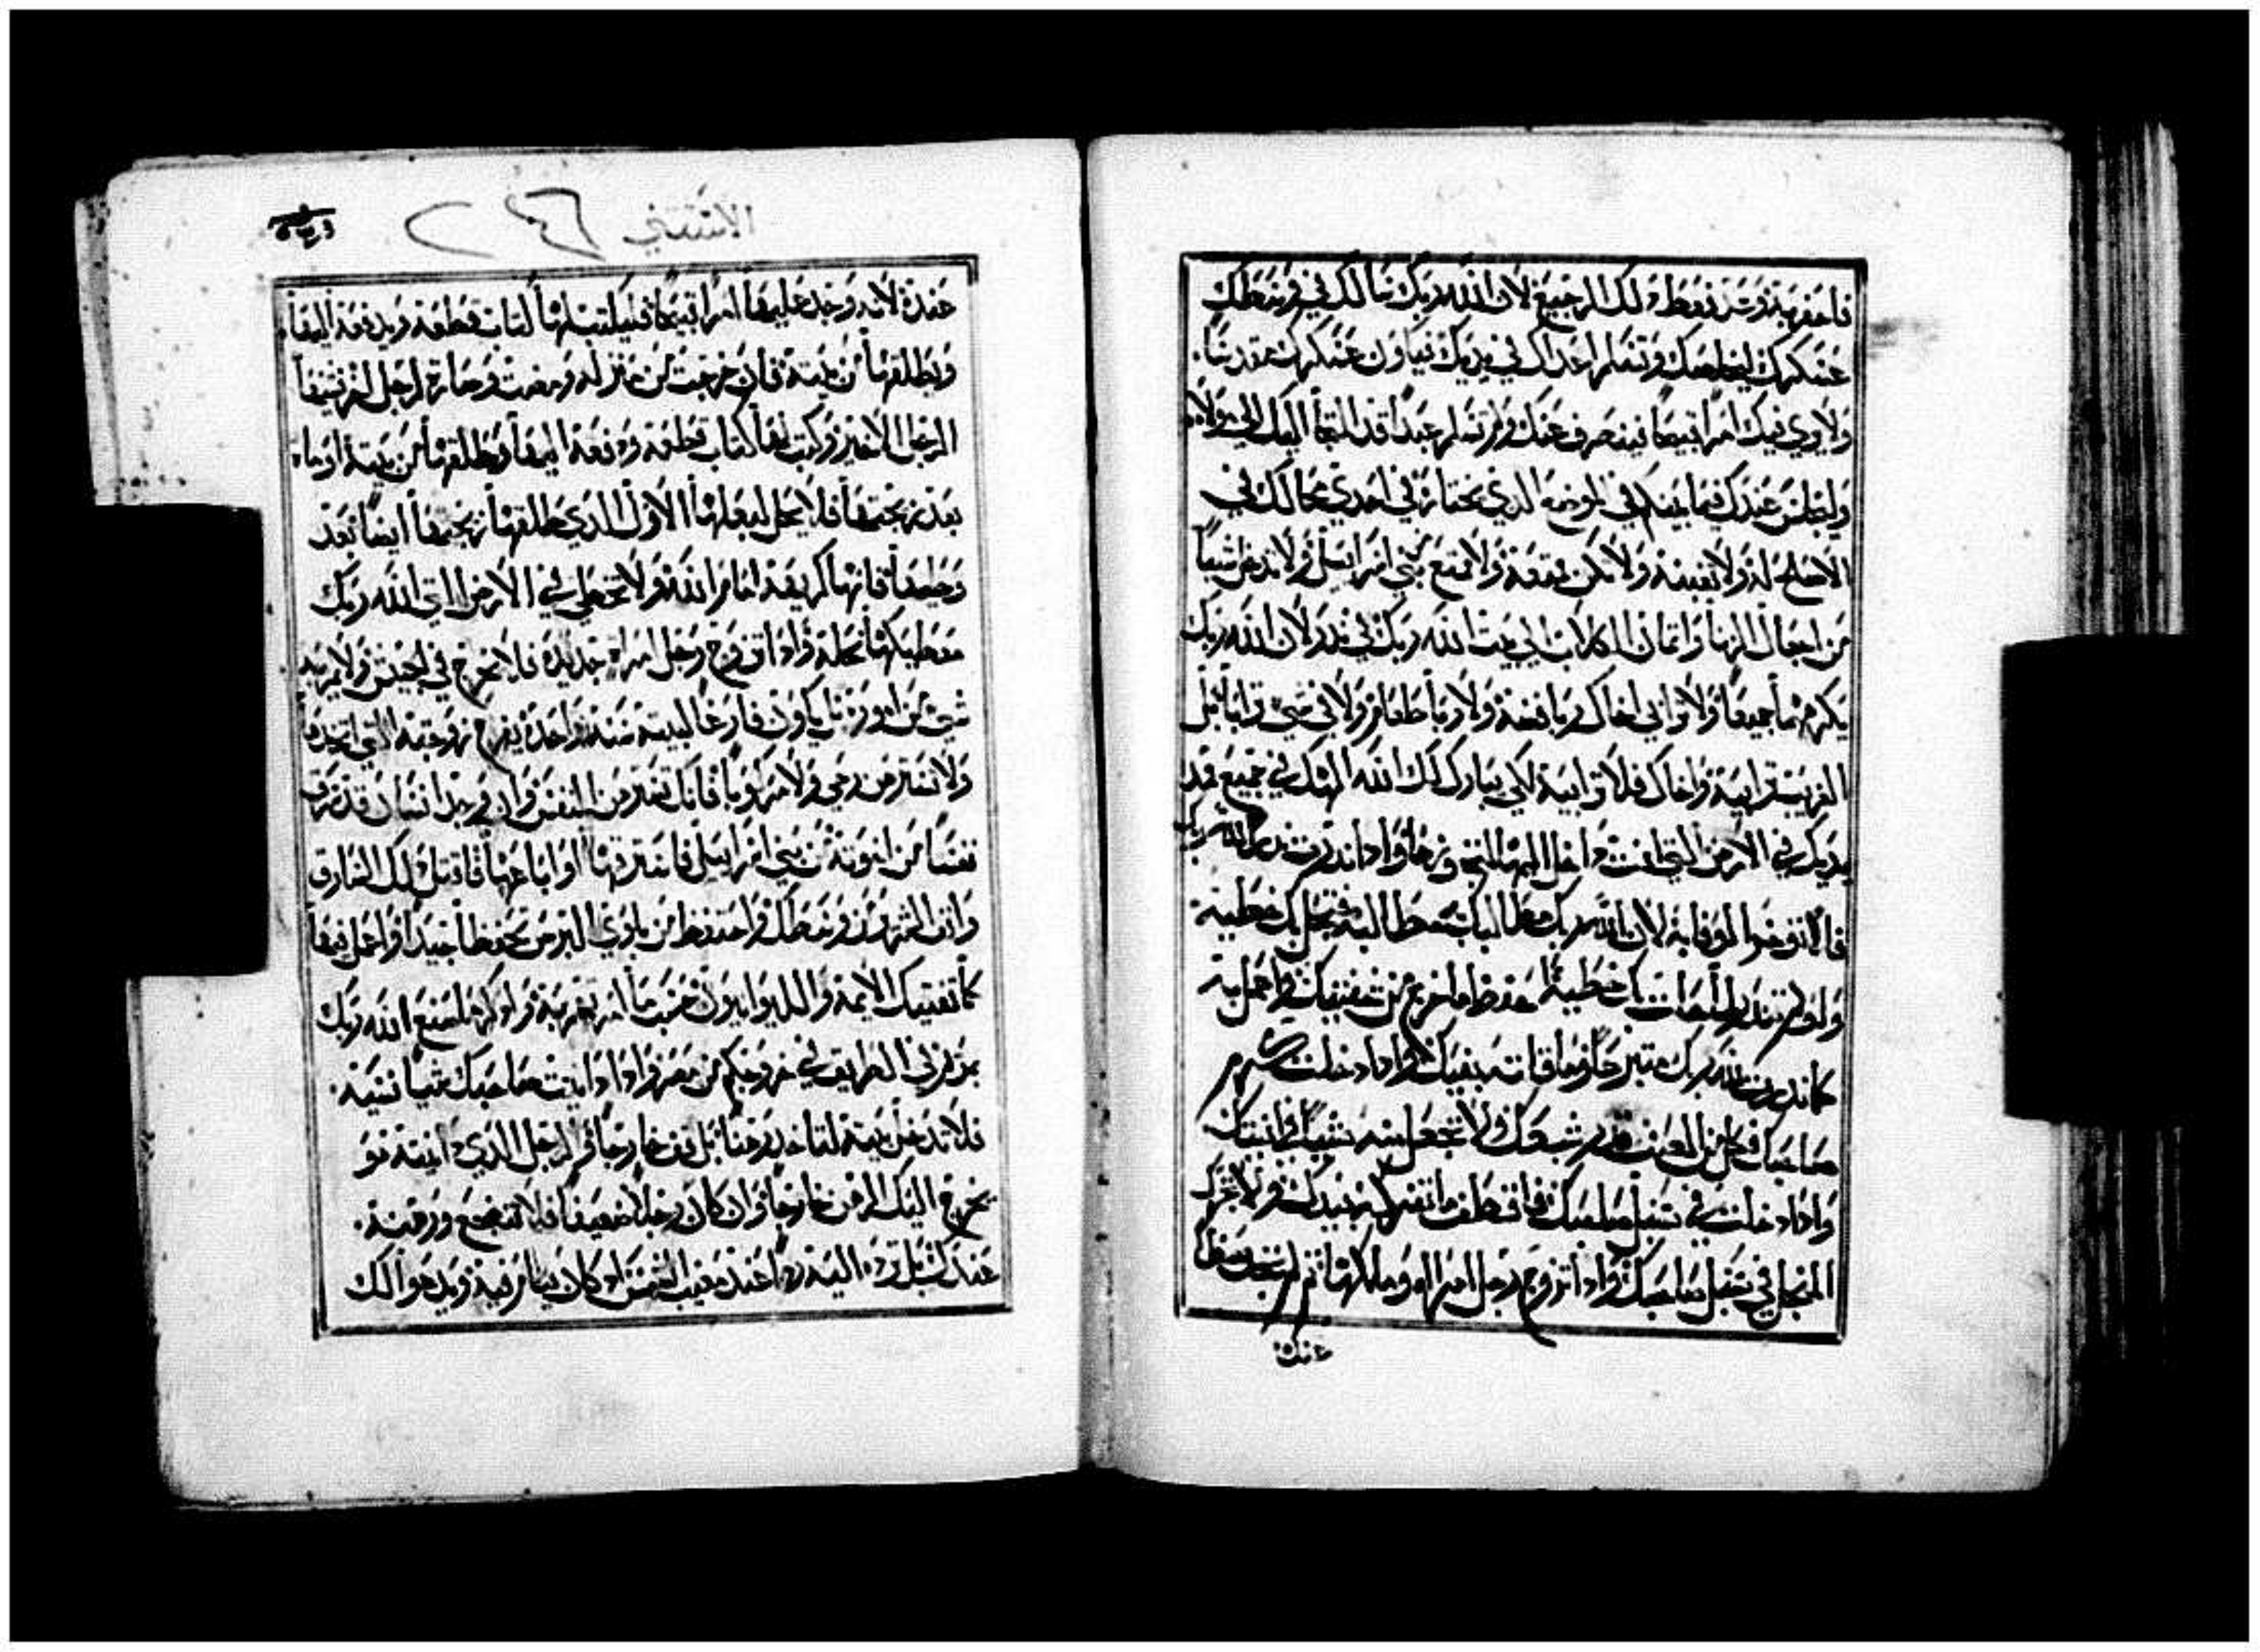 فاحفر به وعد وغط ذلك الرجيع لان الله ربك سالك في وسط
عسكرك ليخلصك وتسلم اعداك في يديك فيكون عسكرك مقدسًا
ولا يري فيك امرا قبيحا فينصرف عنك ولا تسلم عبدا قد التجا اليك الي مولاه
وليجلس عندك فيما بينكم في الموضع الذي يختاره في احدي محالك في
الاصلح له ولا تغبنه ولا تكن بني اسراييل ولا تدخل شيا
من اجعال الزنا واثمان الكلاب الي بيت الله ربك في نذر لان الله ربك
يكرههما جميعا ولا ترابي اخاك ربا فضة ولا ربا طعام ولا في شي ترابا بل
الغريب ترابيه واخاك فلا ترابيه لكي يبارك لك الله الهك في جميع مد
يديك في الارض التي انت داخل اليها لتحوزها واذا نذرت نذر لله ربك
فلا توخر الوفا به لان الله ربك مطالبك به مطالبة فتحل بك خطيه
ولو لم تنذر لما حلت بك خطية احفظ ما خرج من شفتيك واعمل به
كما نذرت لله ربك تبرعا وما فاته بفيك واذا دخلت كرم
صاحبك فكل من العنب قدر شبعك ولا تجعل منه شيا في انيتك
واذا دخلت في سنبل صاحبك فاقطف ما تفركه بيدك ولا تحرك
المنجل في سنبل صاحبك واذا تزوج رجل امراه وملكها ثم لم تجد حظا
عنده
الاستتني ٢٤٦
عنده لانه وجد عليها امرا قبيحا فليكتب لها كتاب قطعه ويدفعه اليها
ويطلقها من بيته فان خرجت من منزله ومضت وصارت لرجل اخر فشنيها
الرجل الاخير وكتب لها كتاب قطعه ودفعه اليها وطلقها من بيته او مات
بعد تزيجها فلا يحل لبعلها الاول الذي طلقها تزيجها ايضا بعد
وطيها فانها كريهه امام الله ولا تخطي في الارض التي الله ربك
معطيكها نحلة واذا تزوج رجل امراة جديدة فلا يخرج في الجيش ولا يمر به
شي من امورنا بل يكون فارغا لبيته سنه واحدة يفرح زوجته التي اتخدها
ولا تسترهن رحي ولا مركوبا فانك تسترهن النفس وان وجد انسان قد سرق
نفسا من اخوته من بني اسراييل فاسترقها او اباعها فاقتل ذلك السارق
وانف الشر من وسطك واحتفظ من بلوي البرص تحفظا جيدا واعمل فيها
كما تفتيك الايمة والليوانيون حسب ما امرتهم به واذكر ما صنع الله ربك
بمريم في الطريق في خروجكم من مصر واذا داينت صاحبك شيا نسيه
فلا تدخل بيته لتاخد رهنا بل قف خارجا والرجل الذي داينته هو
يخرج اليك الرهن خارجا وان كان رجلا ضعيفا فلا تضجع ورهنه
عندك بل رده اليه ردا عند مغيب الشمس اذ كان ينام فيه ويدعوا لك